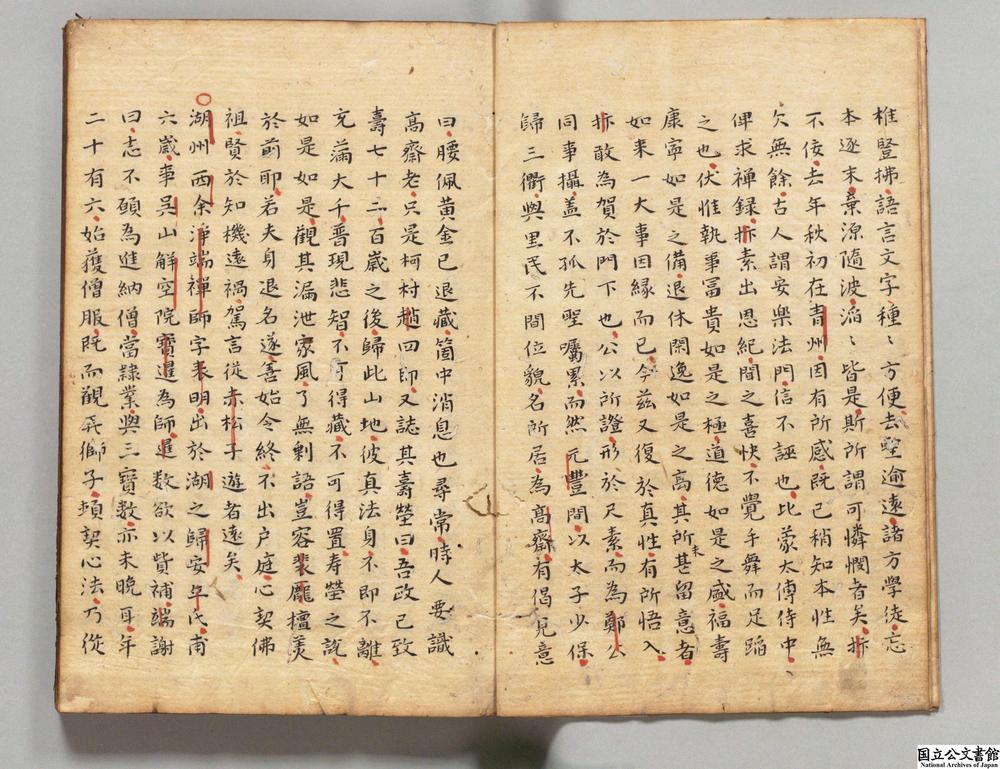 椎豎拂語言文字種〻方便去聖逾遠諸方學徒忘
本逐末棄源隨波滔〻皆是斯所謂可憐憫者矣抃
不侫去年秋初在青州因有所感既已稍知本性無
欠無餘古人謂安樂法門信不誣也比蒙太傅侍中
俾求禅録抃素出恩紀聞之喜快不覺手舞而足蹈
之也伏惟執事冨貴如是之極道德如是之盛福壽
康寧如是之備退休閑逸如是之高其所未甚留意者
如来一大事因縁而已今兹又復於真性有所悟入
抃敢為賀於門下也公以所證形於尺素而為鄭公
同事攝盖不孤先聖囑累而然元豐間以太子少保
歸三衢與里民不間位貌名所居為髙齋有偈見意
曰腰佩黄金已退藏箇中消息也尋常時人要識
髙齋老只是柯村趙四郎又誌其壽塋曰吾政已致
壽七十二百歲之後歸此山地彼真法身不即不離
充滿大千普現悲智不可得藏不可得置寿塋之説
如是如是觀其漏泄家風了無剰語豈容裴龐擅美
於前耶若夫身退名遂善始令終不出户庭心契佛
祖賢於知機遠禍駕言従赤松子遊者遠矣
湖州西余淨端禪師字表明出於湖之歸安丘氏甫
六歲事吴山解空院寳暹為師進数欲以貲補端謝
曰志不願為進納僧當隷業與三寳数亦未晚耳年
二十有六始獲僧服既而觀弄獅子頓契心法乃從